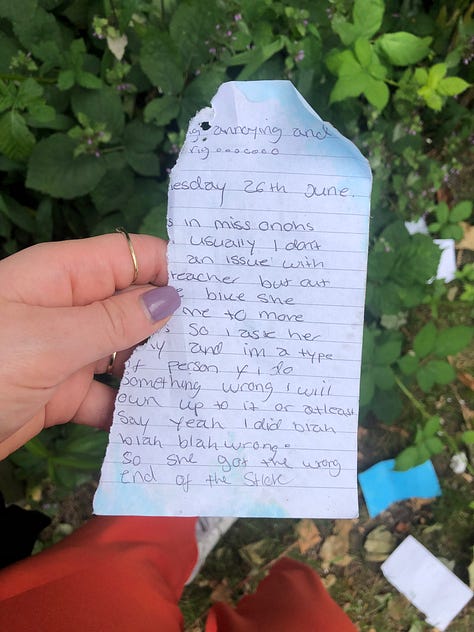 g annoying and
rig.........
esday 26th June.
s in miss onohs
usually I don't
an issue with
teacher but out
e blue she
me to more
s so i ask her
y and im a type
of person y i do
something wrong i will
own up to it or atleast
say yeah I did blah
blah blah wrong.
So she got the wrong
end of the stick